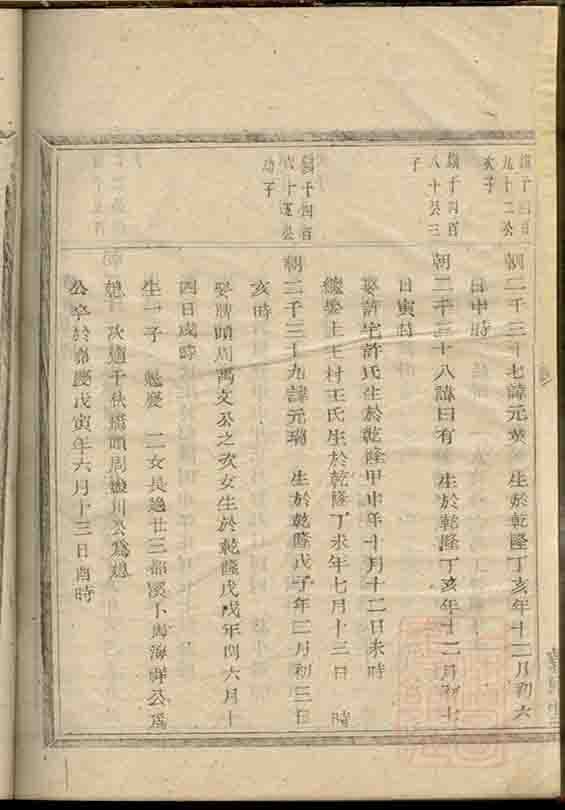 鎮千四百
九十二公
次子
朝二千三十七諱元英 生於乾隆丁亥年十二月初六
日申時
鎮千四百
八十癸三
子
朝二千三十八諱日有 生於乾隆丁亥年十二月初十
日寅時
娶許宅許氏生於乾隆甲申年十月十二日未時
繼娶上王村王氏生於乾隆丁未年七月十三日 時
鎮千四百
六十 公
幼子
朝二千三十九諱元瑞 生於乾隆戊子年二月初三日
亥時
娶牌頭周萬文公之次女生於乾隆戊戌年閏六月十
四日戌時
生一子 懋慶 二女長適廿三都溪下 海群公爲
媳 次適千秋橋頭周 川公爲媳
公卒於嘉慶戊寅年六月十三日酉時